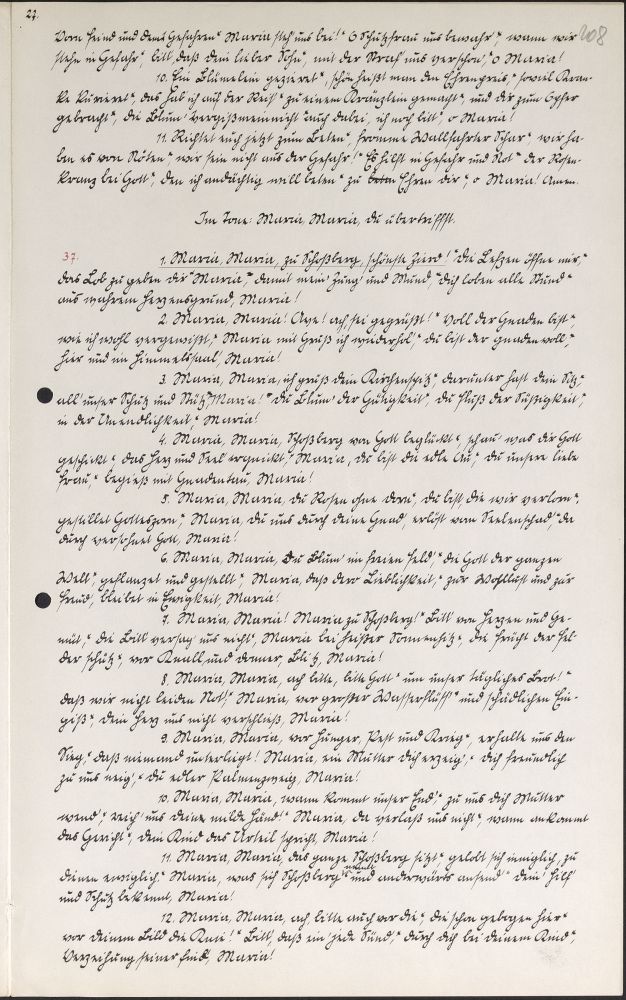 27. 208
Vom Feind und dem Gefahren" Maria steh' uns bei!" O Schutzfrau uns bewahr'", wann wir
stehn in Gefahr" bitt, daß dein lieber Sohn, mit der Straf' uns verschon', o Maria!
10. Ein Blümelein gezieret", schön heißt man den Ehrenpreis,"
"das hab ich auf der Reis'" zu einem Kränzlein gemacht", und dir zum Opfer
gebracht", die Blum' Vergißmeinnicht "auch dabei, ich noch bitt", o Maria!
11. Richtet euch jetzt zum Beten", fromme Wallfahrter Schar", wir ha-
ben es von Nöten", wir sein nicht aus der Gefahr!" Es hilft in Gefahr und Not" der Rosen-
kranz bei Gott", den ich andächtig will beten" zu Ehren dir", o Maria! Amen.
Im Tone: Maria, Maria, du übertriffst.
37. 1. Maria, Maria, zu Schoßberg, schönste Zierd!" Die Lefzen öffne mir,"
das Lob zu geben dir" Maria," damit mein Zung' und Mund," dich loben alle Stund"
aus wahrem Herzensgrund, Maria!
2. Maria, Maria! Ave! ach, sei gegrüßt!" Voll der Gnaden bist"
wie ich wohl vergewißt," Maria mit Gruß ich wiederhol'" du bist der Gnaden voll,"
hier und im Himmelssaal, Maria!
3. Maria, Maria, ich grüß dein Kirchenspitz" darunter hast dein Sitz"
all' unser Schutz und Stütz, Maria!" Du Blum' der Gütigkeit", du Fluß der Süßigkeit,"
in der Unendlichkeit," Maria!
4. Maria, Maria, Schoßberg von Gott beglückt", schau' was dir Gott
geschickt", das Herz und Seel' erquickt," Maria, du bist die edle Au," du unsere liebe
Frau," begieß mit Gnadentau, Maria!
5. Maria, Maria, du Rosen ohne Dorn", du bist, die wir verlorn",
gestillet Gotteszorn," Maria, du uns durch deine Gnad', erlöst vom Seelenschad'," da
durch versöhnet Gott, Maria!
6. Maria, Maria, Du Blum' im freien Feld," die Gott der ganzen
Welt", gepflanzet und gestellt", Maria, daß dero Lieblichkeit," zur Wohllust und zur
Freud', bleibet in Ewigkeit, Maria!
7. Maria, Maria! Maria zu Schoßberg!" Bitt' von Herzen und Ge-
müt," die Bitt' versag' uns nicht", Maria bei heißer Sonnenhitz", die Frücht der Fel-
der schütz", vor Knall und Donner, Blitz, Maria!
8. Maria, Maria, ach bitte, bitte Gott" um unser tägliches Brot!"
daß wir nicht leiden Not!" Maria, vor großer Wasserflüss'" und schädlichen Ein-
güß", dein Herz uns nicht verschließ, Maria!
9. Maria, Maria, vor Hunger, Pest und Krieg", erhalte uns den
Sieg," daß niemand unterliegt! Maria, ein Mutter dich erzeig'," dich freundlich
zu uns neig'," du edler Palmenzweig, Maria!
10. Maria, Maria, wann kommt unser End'" zu uns dich Mutter
wend'," reich' uns deine milde Händ'" Maria, da verlaß uns nicht", wann ankommt
das Gericht", dein Kind das Urteil spricht, Maria!
11. Maria, Maria, das ganze Schoßberg" gelobt sich inniglich, zu
dienen ewiglich" Maria, was sich Schoßberg und anderwärts" dein' Hilf'
und Schutz bekennt, Maria!
12. Maria, Maria, ach bitte auch vor die", die schon gebogen hier"
vor deinem Bild die Knie!" Bitt', daß ein jede Sünd'," durch dich bei deinem Kind",
Verzeihung seiner find', Maria!